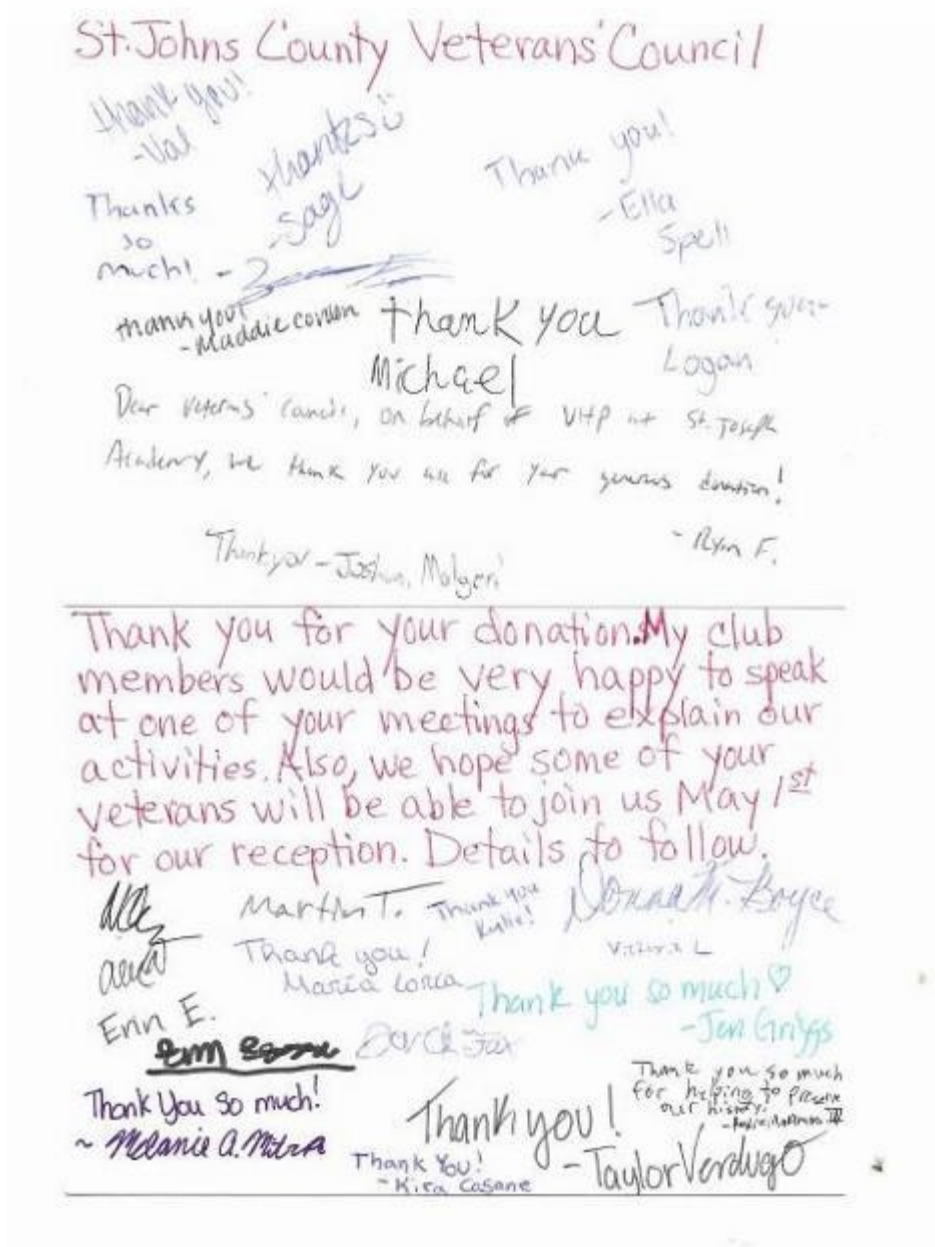 St. Johns County Veterans' Council
thank you!
-Val
thanks
-Sage
Thank you!
-Ella
Spell
Thanks
so
much! -
thank you!
-Maddie
thank you
Michael
Thank you-
Logan
Dear Veterans' Council, on behalf of VHP at St. Joseph
Academy, we thank you all for your generous donation!
- Ryan F.
Thank you - Joshua
Thank you for your donation. My club
members would be very happy to speak
at one of your meetings to explain our
activities. Also, we hope some of your
veterans will be able to join us May 1st
for our reception. Details to follow.
Martin T.
Thank you
Donna M. Boyce
Thank you!
Maria Lorca
L
Thank you so much ♡
-Jen Griggs
Erin E.
Thank You so much!
~ Melanie A. Mitra
Thank you!
-Taylor Verdugo
Thank you so much
for helping to preserve
our history.
Thank You!
-Kira